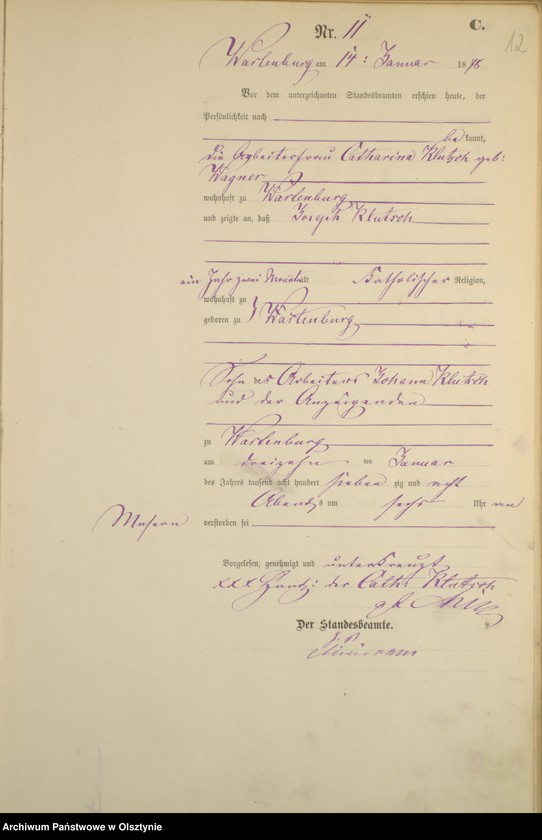 C.
12
Nr. 11
Wartenburg am 14: Januar 1878
Vor dem unterzeichneten Standesbeamten erschien heute, der
Persönlichkeit nach
bekannt,
die Arbeiterfrau Catharina Klutsch geb:
Wagner
wohnhaft zu Wartenburg
und zeigte an, daß Joseph Klutsch
ein Jahr zwei Monate alt Katholischer Religion,
wohnhaft zu
geboren zu } Wartenburg
Sohn des Arbeiters Johann Klutsch
und der Anzeigenden
zu Wartenburg
am dreizehn ten Januar
des Jahres tausend acht hundert sieben zig und acht
Abends um sechs Uhr an
Masern
verstorben sei
Vorgelesen, genehmigt und unterkreuzt
xxx Handz: der Cath: Klutsch
Der Standesbeamte.
Archiwum Państwowe w Olsztynie